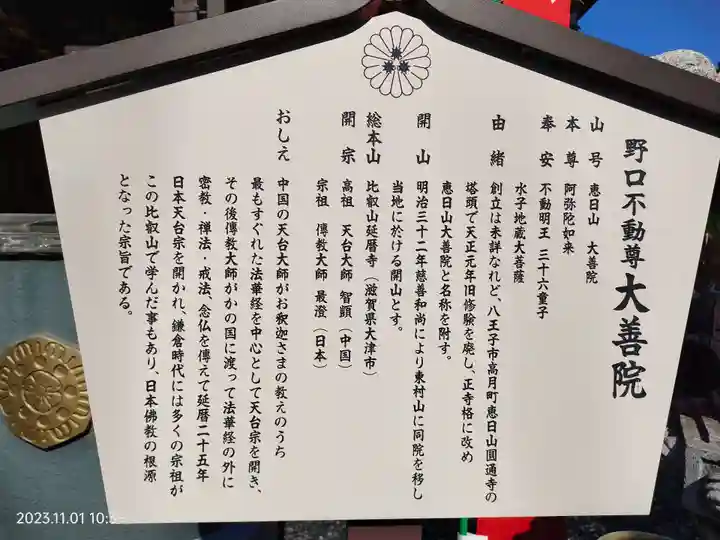 野口不動尊 大善院
山号 恵日山 大善院
本尊 阿弥陀如来
奉安 不動明王 三十六童子
水子地蔵大菩薩
由緒 創立は未詳なれど、八王子市高月町恵日山圓通寺の
塔頭で天正元年旧修験を廃し、正寺格に改め
恵日山大善院と名称を附す。
開山 明治三十二年慈善和尚により東村山に同院を移し
当地に於ける開山とす。
総本山 比叡山延暦寺（滋賀県大津市）
開宗 高祖 天台大師 智顗（中国）
宗祖 傳教大師 最澄（日本）
おしえ 中国の天台大師がお釈迦さまの教えのうち
最もすぐれた法華経を中心として天台宗を開き、
その後傳教大師がかの国に渡って法華経の外に
密教・禅法・戒法、念仏を傳えて延暦二十五年
日本天台宗を開かれ、鎌倉時代には多くの宗祖が
この比叡山で学んだ事もあり、日本佛教の根源
となった宗旨である。
2023.11.01 10: